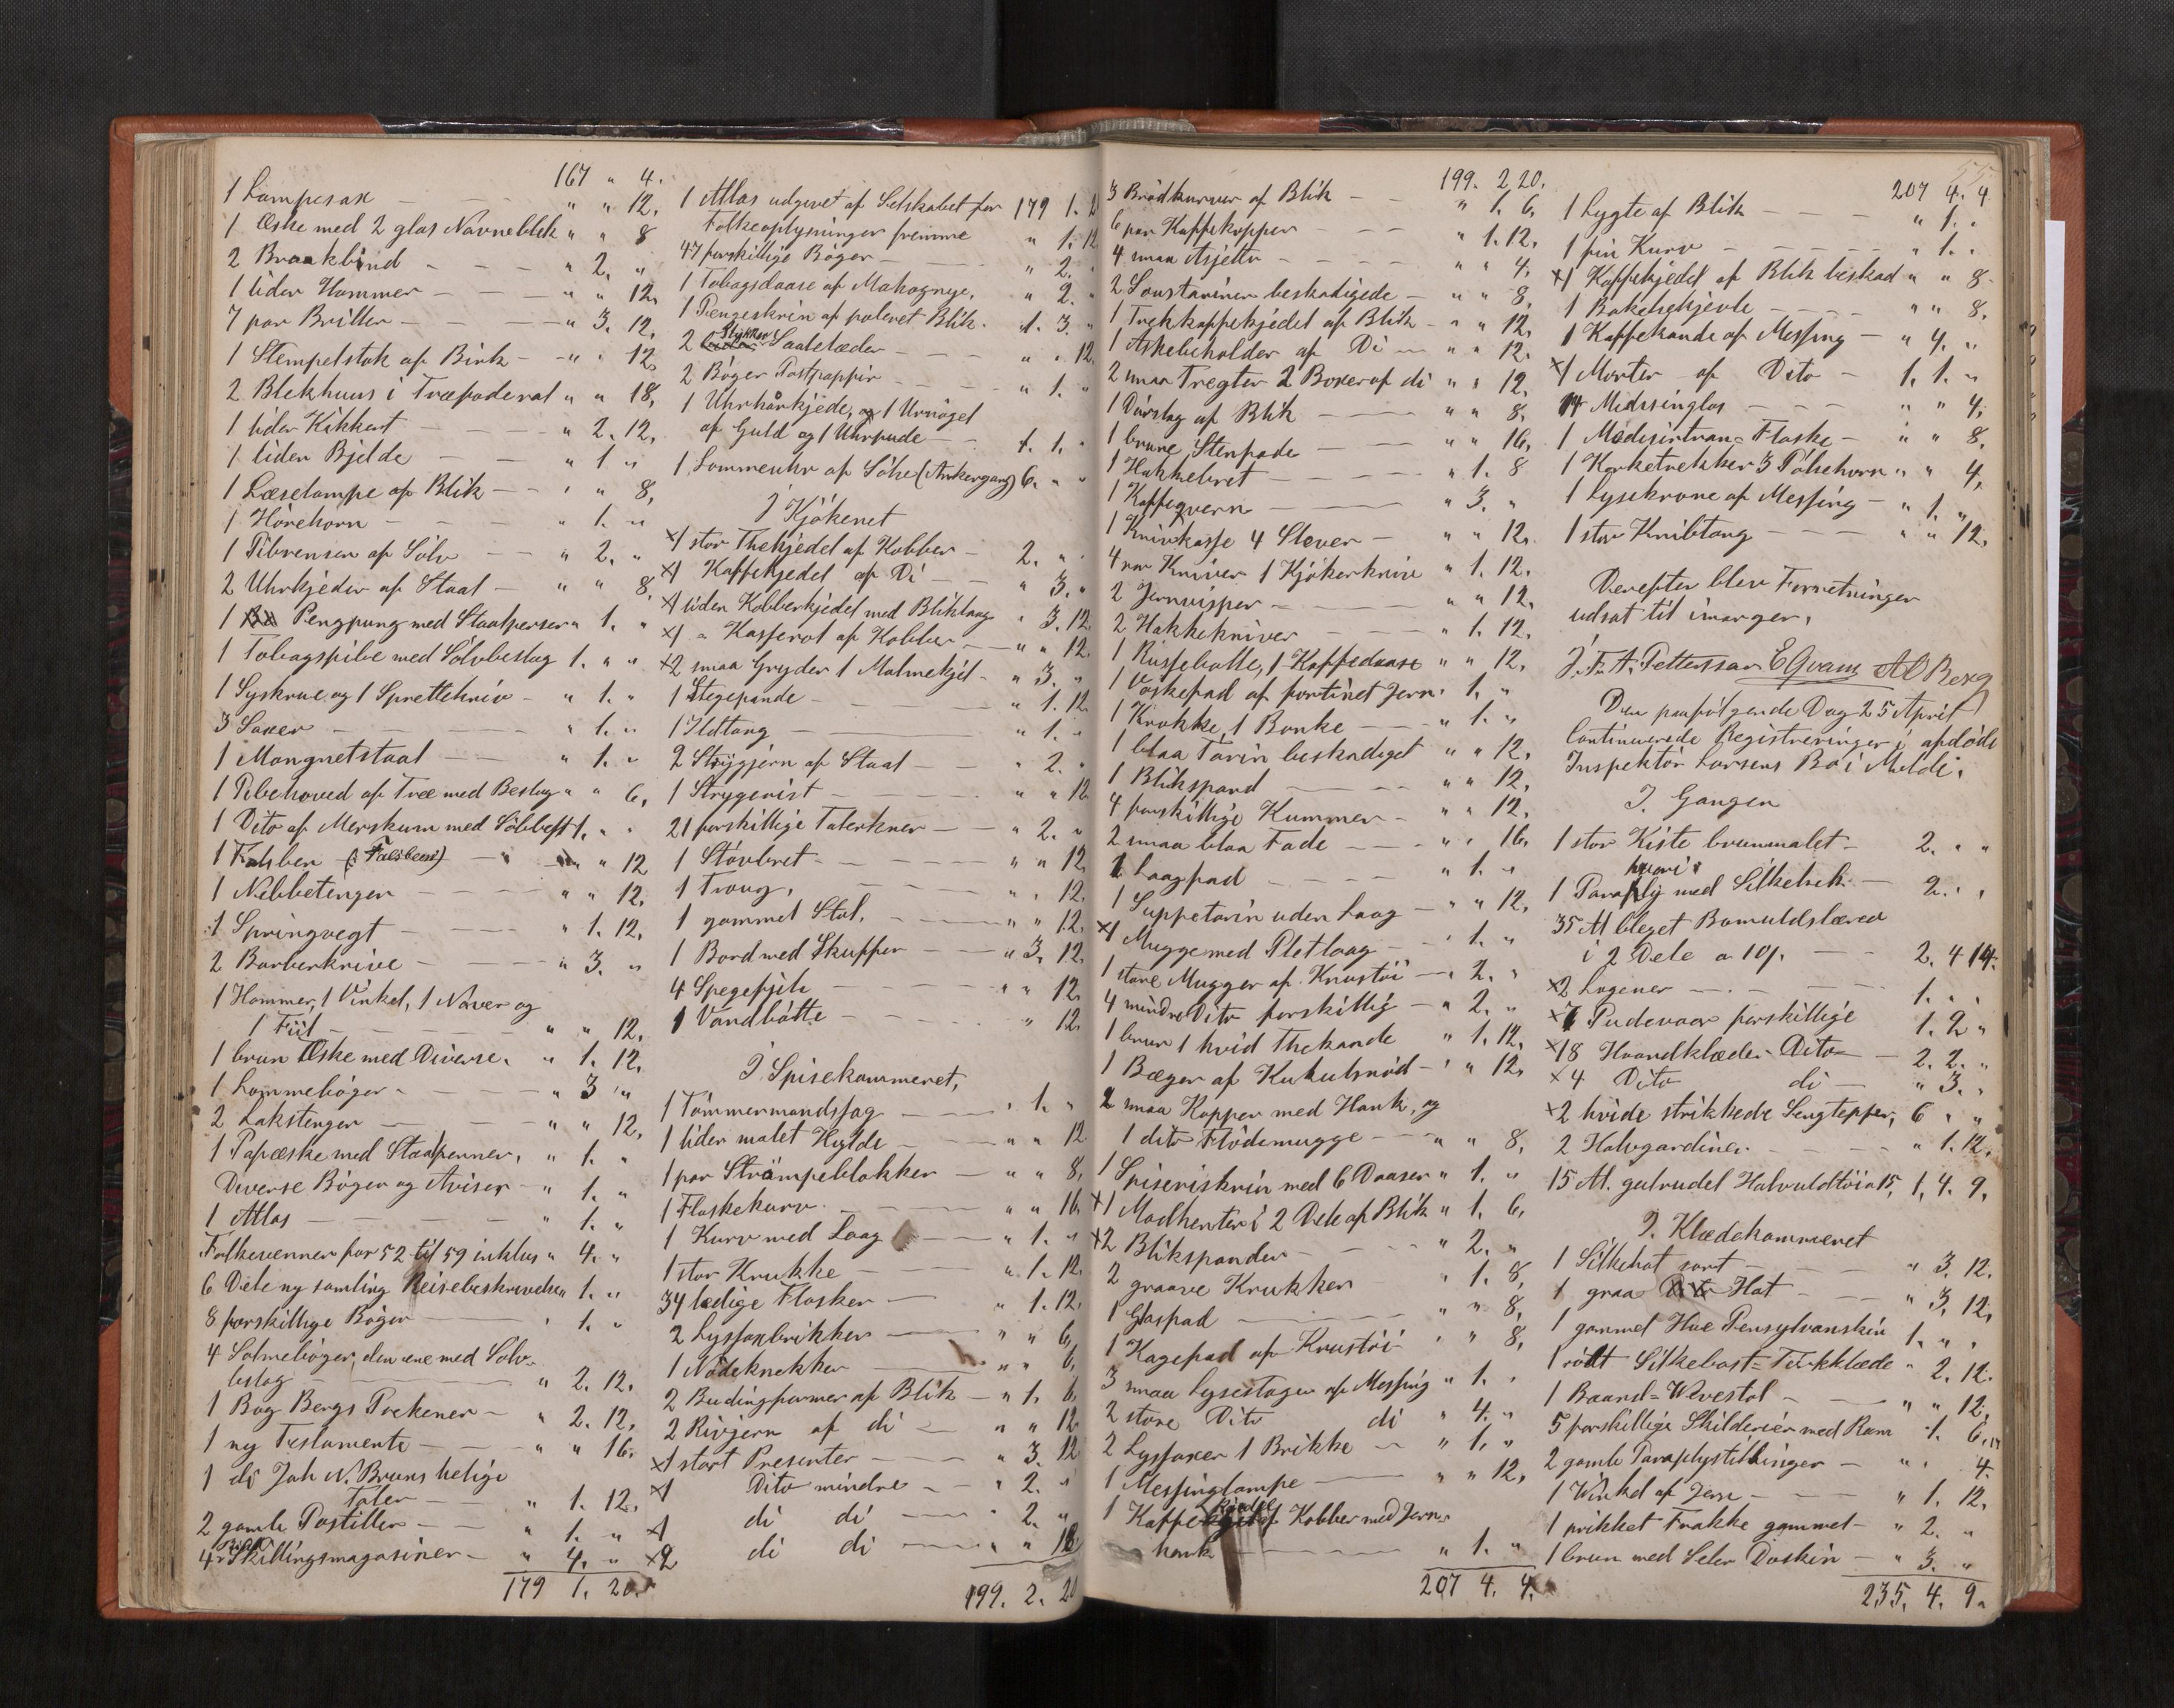 167 " 4.
1 Lampesax - - " " 12.
1 Æske med 2 glas Navneblek " " 8
2 Braakbind - - - " 2. "
1 liden Hammer - - - " " 12.
7 par Briller - - - " 3. 12.
1 Stempelstok af Birk - " " 12.
2 Blekhuus i Træfoderal " " 18.
1 liden Kikkert - - - " 2. 12.
1 liden Bjelde - - " 1 "
1 Læselampe af Blik - - " " 8.
1 Hørehorn - - - " 1. "
1 Pibrenser af Sølv - - " 2. "
2 Uhrkjeder af Staal - " " 8.
1 Pengpung med Staalperser " 1. "
1 Tobagspibe med Sølvbeslag 1. " "
1 Syskrue og 1 Sprettekniv - " 1. "
3 Saxer - - - " 1. "
1 Mangnetstaal - - " 1. "
1 Pibehoved af Træ med Beslag " " 6.
1 Dito af Merskum med Sølvbesl 1. " "
1 Falsben (: Falsbeen) - " " 12
1 Nebbetenger - - - " " 12.
1 Springvegt - - - " 1. 12.
2 Barberknive - - - " 3. "
1 Hammer, 1 Vinkel, 1 Naver og
1 Fiil - - - " " 12.
1 brun Æske med Diverse. " 1. 12.
1 Lommebøger - - - " 3 "
2 Lakstenger - - - " " 12.
1 Papæske med Staalpenner, " 1. "
Diverse Bøger og Aviser - " 1. "
1 Atlas - - - " 1. "
Folkevennen for 52 til 59 inklus " 4. "
6 Dele ny samling Reisebeskrivelser 1. "
8 forskillige Bøger - - " 1. "
4 Salmebøger, den ene med Sølv-
beslag - - - " 2. 12.
1 Bog Bergs Prekener - " 2. 12.
1 ny Testamente - - " " 16.
1 di Joh N. Bruns helige
Taler - - " 1. 12.
2 gamle Postiller - - " 1. "
4 Skillingsmagasiner - " 4. "
179 1. 20.
1 Atlas udgivet af Selskabet for 179 1. 20
Folkeoplysninger fremme " 1. 12
47 forskillige Bøger - - " 2. "
1 Tobagsdaase af Mahognye. " 2. "
1 Pengeskrin af poleret Blik. 1. 3. "
2 Stykker Saalelæder - - " " 12.
2 Bøger Postpappir - - " 1. "
1 Uhrhårkjede, og 1 Urnøgel
af Guld og 1 Uhrpude - - 1. 1. "
1 Lommeuhr af Sølv (Ankergang) 6. " "
I Kjøkenet
x1 stor Thekjedel af Kobber - 2. " "
x1 Kaffekjedel af Di - - " 3. "
x1 liden Kobberkjedel med Bliklaag " 3. 12.
x1 " Kasserol af Kobber - " " 12.
x2 smaa Gryder 1 Malmekjel - " 3. "
1 Stegepande - - " 1. 12.
1 Ildtang - - " 1. "
2 Strygjern af Staal - - " 2. "
1 Strygerist - - " " 12
21 forskillige Talerkner - - " 2. "
1 Støvbret - - " " 12
1 Troug. - - " " 12.
1 gammel Stol. - - " " 12.
1 Bord med Skuffer - - " 3. 12.
4 Spegefjile - - " " 12.
1 Vandbøtte - - " 12.
I Spisekammeret,
1 Tømmermandssag - - " 1. "
1 liden malet Hylde - - " " 12
1 par Strømpeblokker - " " 8.
1 Flaskekurv - - " " 16.
1 Kurv med Laag - " 1. "
1 stor Krukke - - " 1. 12.
34 ledige Flasker - " 1. 12.
2 Lyssaxbrikker - - " " 6.
1 Nødeknekker - - " " 6.
2 Budingformer af Blik - " 1. 6.
2 Rivjern af di - " " 12
x1 stort Presenter - - " 3. 12
x1 Dito mindre - - " 2. "
x1 di di - - " 2. "
x2 di di - - " " 18
199. 2. 20
199. 2. 20.
3 Brødkurver af Blik - - " 1. 6.
6 par Kaffekopper - - " 1. 12.
4 smaa Asjetter - - - " " 4.
2 Saustariner beskadigede - " " 8.
1 Trekkaffekjedel af Blik - " " 12.
1 Askebeholder af Di - " " 12.
2 smaa Tregter 2 Boxer af di " " 12.
1 Dørslag af Blik - - " " 8.
1 brune Stenfade - - " " 16.
1 Hakkebret - - " 1. 8
1 Kaffeqvern - - " 3. "
1 Knivkasse 4 Slever - " " 12.
4 par Kniver 1 Kjøkerkniv " 1. 12.
2 Jernvisper - - " " 12.
2 Hakkekniver - - " 1. 12.
1 Rissebolle, 1 Kaffedaase " " 12.
1 Vaskefad af fortinet Jern. 1. "
1 Krukke, 1 Bonke - - " 1. "
1 blaa Tarin beskadiget " " 12.
1 Blikspand - - " " 12.
4 forskillige Kummer - " " 12.
2 smaa blaa Fade - - " " 16.
1 Laagfad - - " 1. "
1 Suppetarin uden Laag - " " 12.
x1 Mugge med Pletlaag - " 1. "
1 store Mugger af Krustøi - " 2. "
4 mindre Dito forskillig - " 2. "
1 brun 1 hvid Thekande " 1. 12.
1 Bæger af Kukulsnød - " " 12.
2 smaa Kopper med Hank, og
1 dito Flødemugge - " " 8.
1 Spiseriskrin med 6 Daaser " 1. "
x1 Madhenter i 2 Dele af Blik " 1. 6.
x2 Blikspander - - " 2. "
2 graave Krukker " 1. 8.
1 Glasfad - - " " 8.
1 Kagefad af Krustøi " " 8.
3 smaa Lysestager af Messing " 1. "
2 store Dito di " 4. "
2 Lyssaxer 1 Brikke - " 1. "
1 Messinglampe - " " 12.
1 Kaffekjedel af Kobber med Jern-
hank - " 1. "
207 4. 4.
207 4. 4
1 Lygte af Blik - - - " 1. "
1 fin Kurv - - - " 1. "
x1 Kaffekjedel af Blik beskad " " 8.
1 Bakelsekjevle - - " " 8.
1 Kaffekande af Messing - " 4. "
x1 Morter af Dito - 1. 1. "
14 Medisinglas - - " " 4.
1 Medisintran= Flaske - " " 8.
1 Korketrekker 3 Pølsehorn " " 4.
1 Lysekrone af Messing - " 1. "
1 stor Knibtang - - " " 12.
Derefter blev Forretningen
udsat til imorgen.
J. Fr. A. Pettersson E Qvam AO Berg
Den paafølgende Dag 25 April
Continuerede Registreringen i afdøde
Inspektør Larsens Bo i Melde.
I. Gangen
1 stor Kiste brunmalet - 2. " "
hvori:
1 Paraply med Silketrek - 2. " "
35 Al bleget Bomuldslæred
i 2 Dele a 10 f. - 2. 4 14.
x2 Lagener - - 1. " "
x6 Pudevaar forskillige 1. 2 "
x18 Haandklæder Dito - 2. 2. "
x4 Dito di - " 3. "
x2 hvide strikkede Sengtepper, 6 " "
2 Halvgardiner - - " 1. 12.
15 Al. gulrudet Halvuldtøi a 15, 1, 4. 9.
I. Klædekammeret
1 Silkehat sort - - " 3. 12.
1 graa Hat - - " 3. 12.
1 gammel Hue Pensylvanskin 1. " "
1 rødt Silkebast= Tørklæde " 2. 12.
1 Baand= Wevestol - " " 12.
5 forskillige Skilderier med Ram 1. 6.
2 gamle Paraplystillinger - " " 4.
1 Vinkel af Jern - - " 1. 12.
1 prikket Frakke gammel - " 2. "
1 brun med Seler Doskin - " 3. "
235. 4. 9.